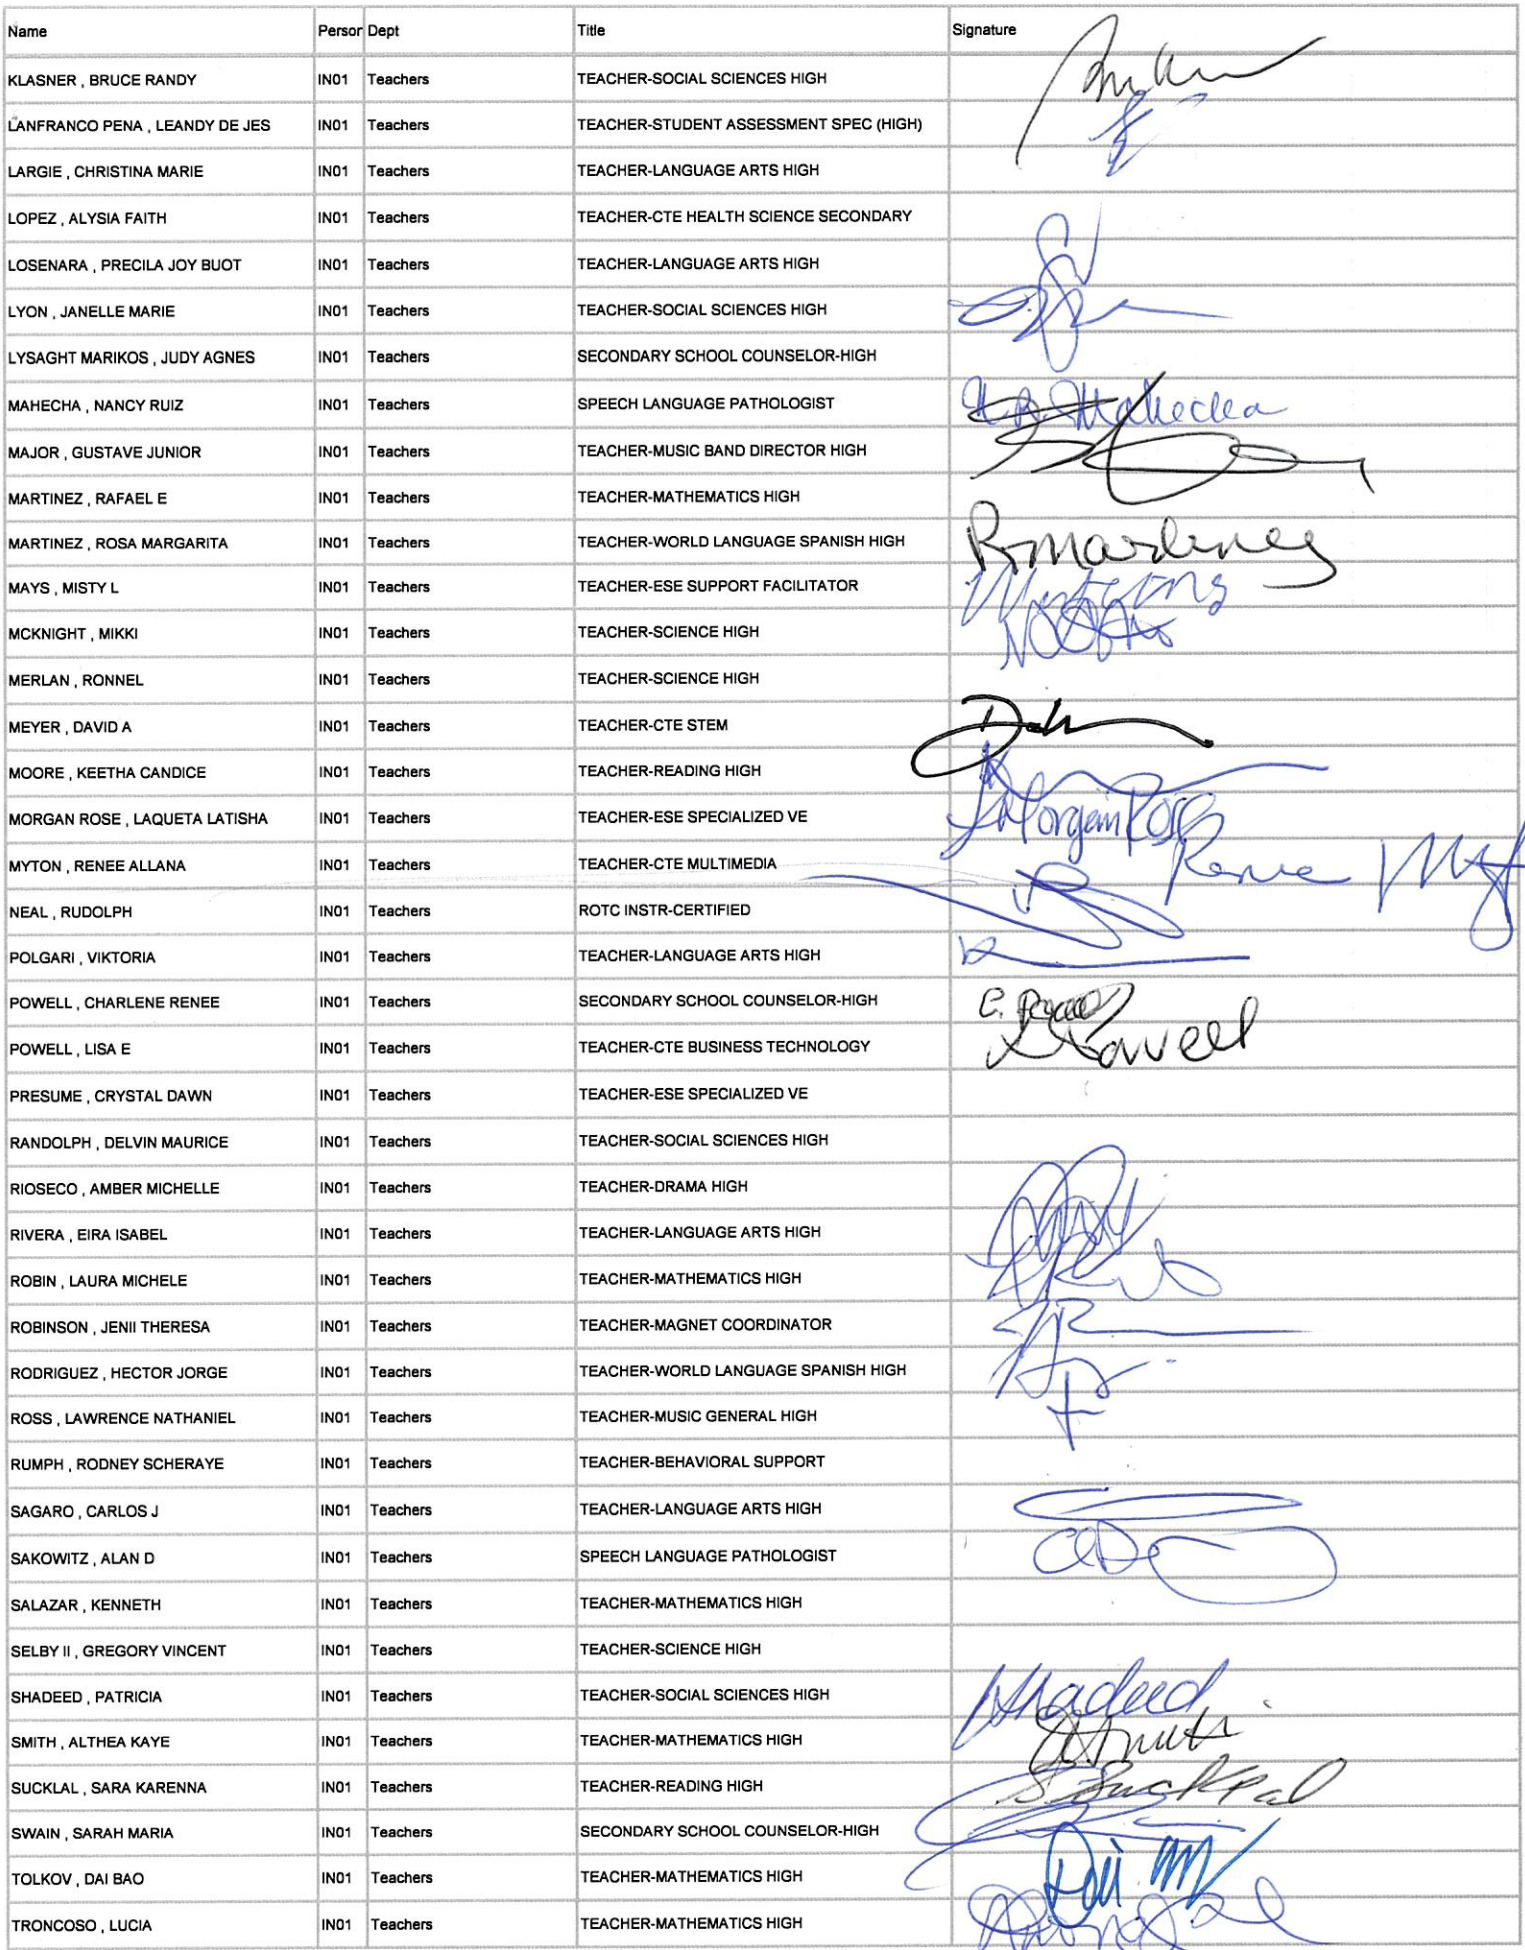 Name Person Dept Title Signature
KLASNER , BRUCE RANDY IN01 Teachers TEACHER-SOCIAL SCIENCES HIGH
LANFRANCO PENA , LEANDY DE JES IN01 Teachers TEACHER-STUDENT ASSESSMENT SPEC (HIGH)
LARGIE , CHRISTINA MARIE IN01 Teachers TEACHER-LANGUAGE ARTS HIGH
LOPEZ , ALYSIA FAITH IN01 Teachers TEACHER-CTE HEALTH SCIENCE SECONDARY
LOSENARA , PRECILA JOY BUOT IN01 Teachers TEACHER-LANGUAGE ARTS HIGH
LYON , JANELLE MARIE IN01 Teachers TEACHER-SOCIAL SCIENCES HIGH
LYSAGHT MARIKOS , JUDY AGNES IN01 Teachers SECONDARY SCHOOL COUNSELOR-HIGH
MAHECHA , NANCY RUIZ IN01 Teachers SPEECH LANGUAGE PATHOLOGIST Mahecha
MAJOR , GUSTAVE JUNIOR IN01 Teachers TEACHER-MUSIC BAND DIRECTOR HIGH
MARTINEZ , RAFAEL E IN01 Teachers TEACHER-MATHEMATICS HIGH
MARTINEZ , ROSA MARGARITA IN01 Teachers TEACHER-WORLD LANGUAGE SPANISH HIGH
MAYS , MISTY L IN01 Teachers TEACHER-ESE SUPPORT FACILITATOR
MCKNIGHT , MIKKI IN01 Teachers TEACHER-SCIENCE HIGH
MERLAN , RONNEL IN01 Teachers TEACHER-SCIENCE HIGH
MEYER , DAVID A IN01 Teachers TEACHER-CTE STEM
MOORE , KEETHA CANDICE IN01 Teachers TEACHER-READING HIGH
MORGAN ROSE , LAQUETA LATISHA IN01 Teachers TEACHER-ESE SPECIALIZED VE Morgan Rose
MYTON , RENEE ALLANA IN01 Teachers TEACHER-CTE MULTIMEDIA Renee
NEAL , RUDOLPH IN01 Teachers ROTC INSTR-CERTIFIED
POLGARI , VIKTORIA IN01 Teachers TEACHER-LANGUAGE ARTS HIGH
POWELL , CHARLENE RENEE IN01 Teachers SECONDARY SCHOOL COUNSELOR-HIGH C. Powell
POWELL , LISA E IN01 Teachers TEACHER-CTE BUSINESS TECHNOLOGY Powell
PRESUME , CRYSTAL DAWN IN01 Teachers TEACHER-ESE SPECIALIZED VE
RANDOLPH , DELVIN MAURICE IN01 Teachers TEACHER-SOCIAL SCIENCES HIGH
RIOSECO , AMBER MICHELLE IN01 Teachers TEACHER-DRAMA HIGH
RIVERA , EIRA ISABEL IN01 Teachers TEACHER-LANGUAGE ARTS HIGH
ROBIN , LAURA MICHELE IN01 Teachers TEACHER-MATHEMATICS HIGH
ROBINSON , JENII THERESA IN01 Teachers TEACHER-MAGNET COORDINATOR
RODRIGUEZ , HECTOR JORGE IN01 Teachers TEACHER-WORLD LANGUAGE SPANISH HIGH
ROSS , LAWRENCE NATHANIEL IN01 Teachers TEACHER-MUSIC GENERAL HIGH
RUMPH , RODNEY SCHERAYE IN01 Teachers TEACHER-BEHAVIORAL SUPPORT
SAGARO , CARLOS J IN01 Teachers TEACHER-LANGUAGE ARTS HIGH
SAKOWITZ , ALAN D IN01 Teachers SPEECH LANGUAGE PATHOLOGIST
SALAZAR , KENNETH IN01 Teachers TEACHER-MATHEMATICS HIGH
SELBY II , GREGORY VINCENT IN01 Teachers TEACHER-SCIENCE HIGH
SHADEED , PATRICIA IN01 Teachers TEACHER-SOCIAL SCIENCES HIGH Shadeed
SMITH , ALTHEA KAYE IN01 Teachers TEACHER-MATHEMATICS HIGH
SUCKLAL , SARA KARENNA IN01 Teachers TEACHER-READING HIGH S. Sucklal
SWAIN , SARAH MARIA IN01 Teachers SECONDARY SCHOOL COUNSELOR-HIGH
TOLKOV , DAI BAO IN01 Teachers TEACHER-MATHEMATICS HIGH Dai
TRONCOSO , LUCIA IN01 Teachers TEACHER-MATHEMATICS HIGH